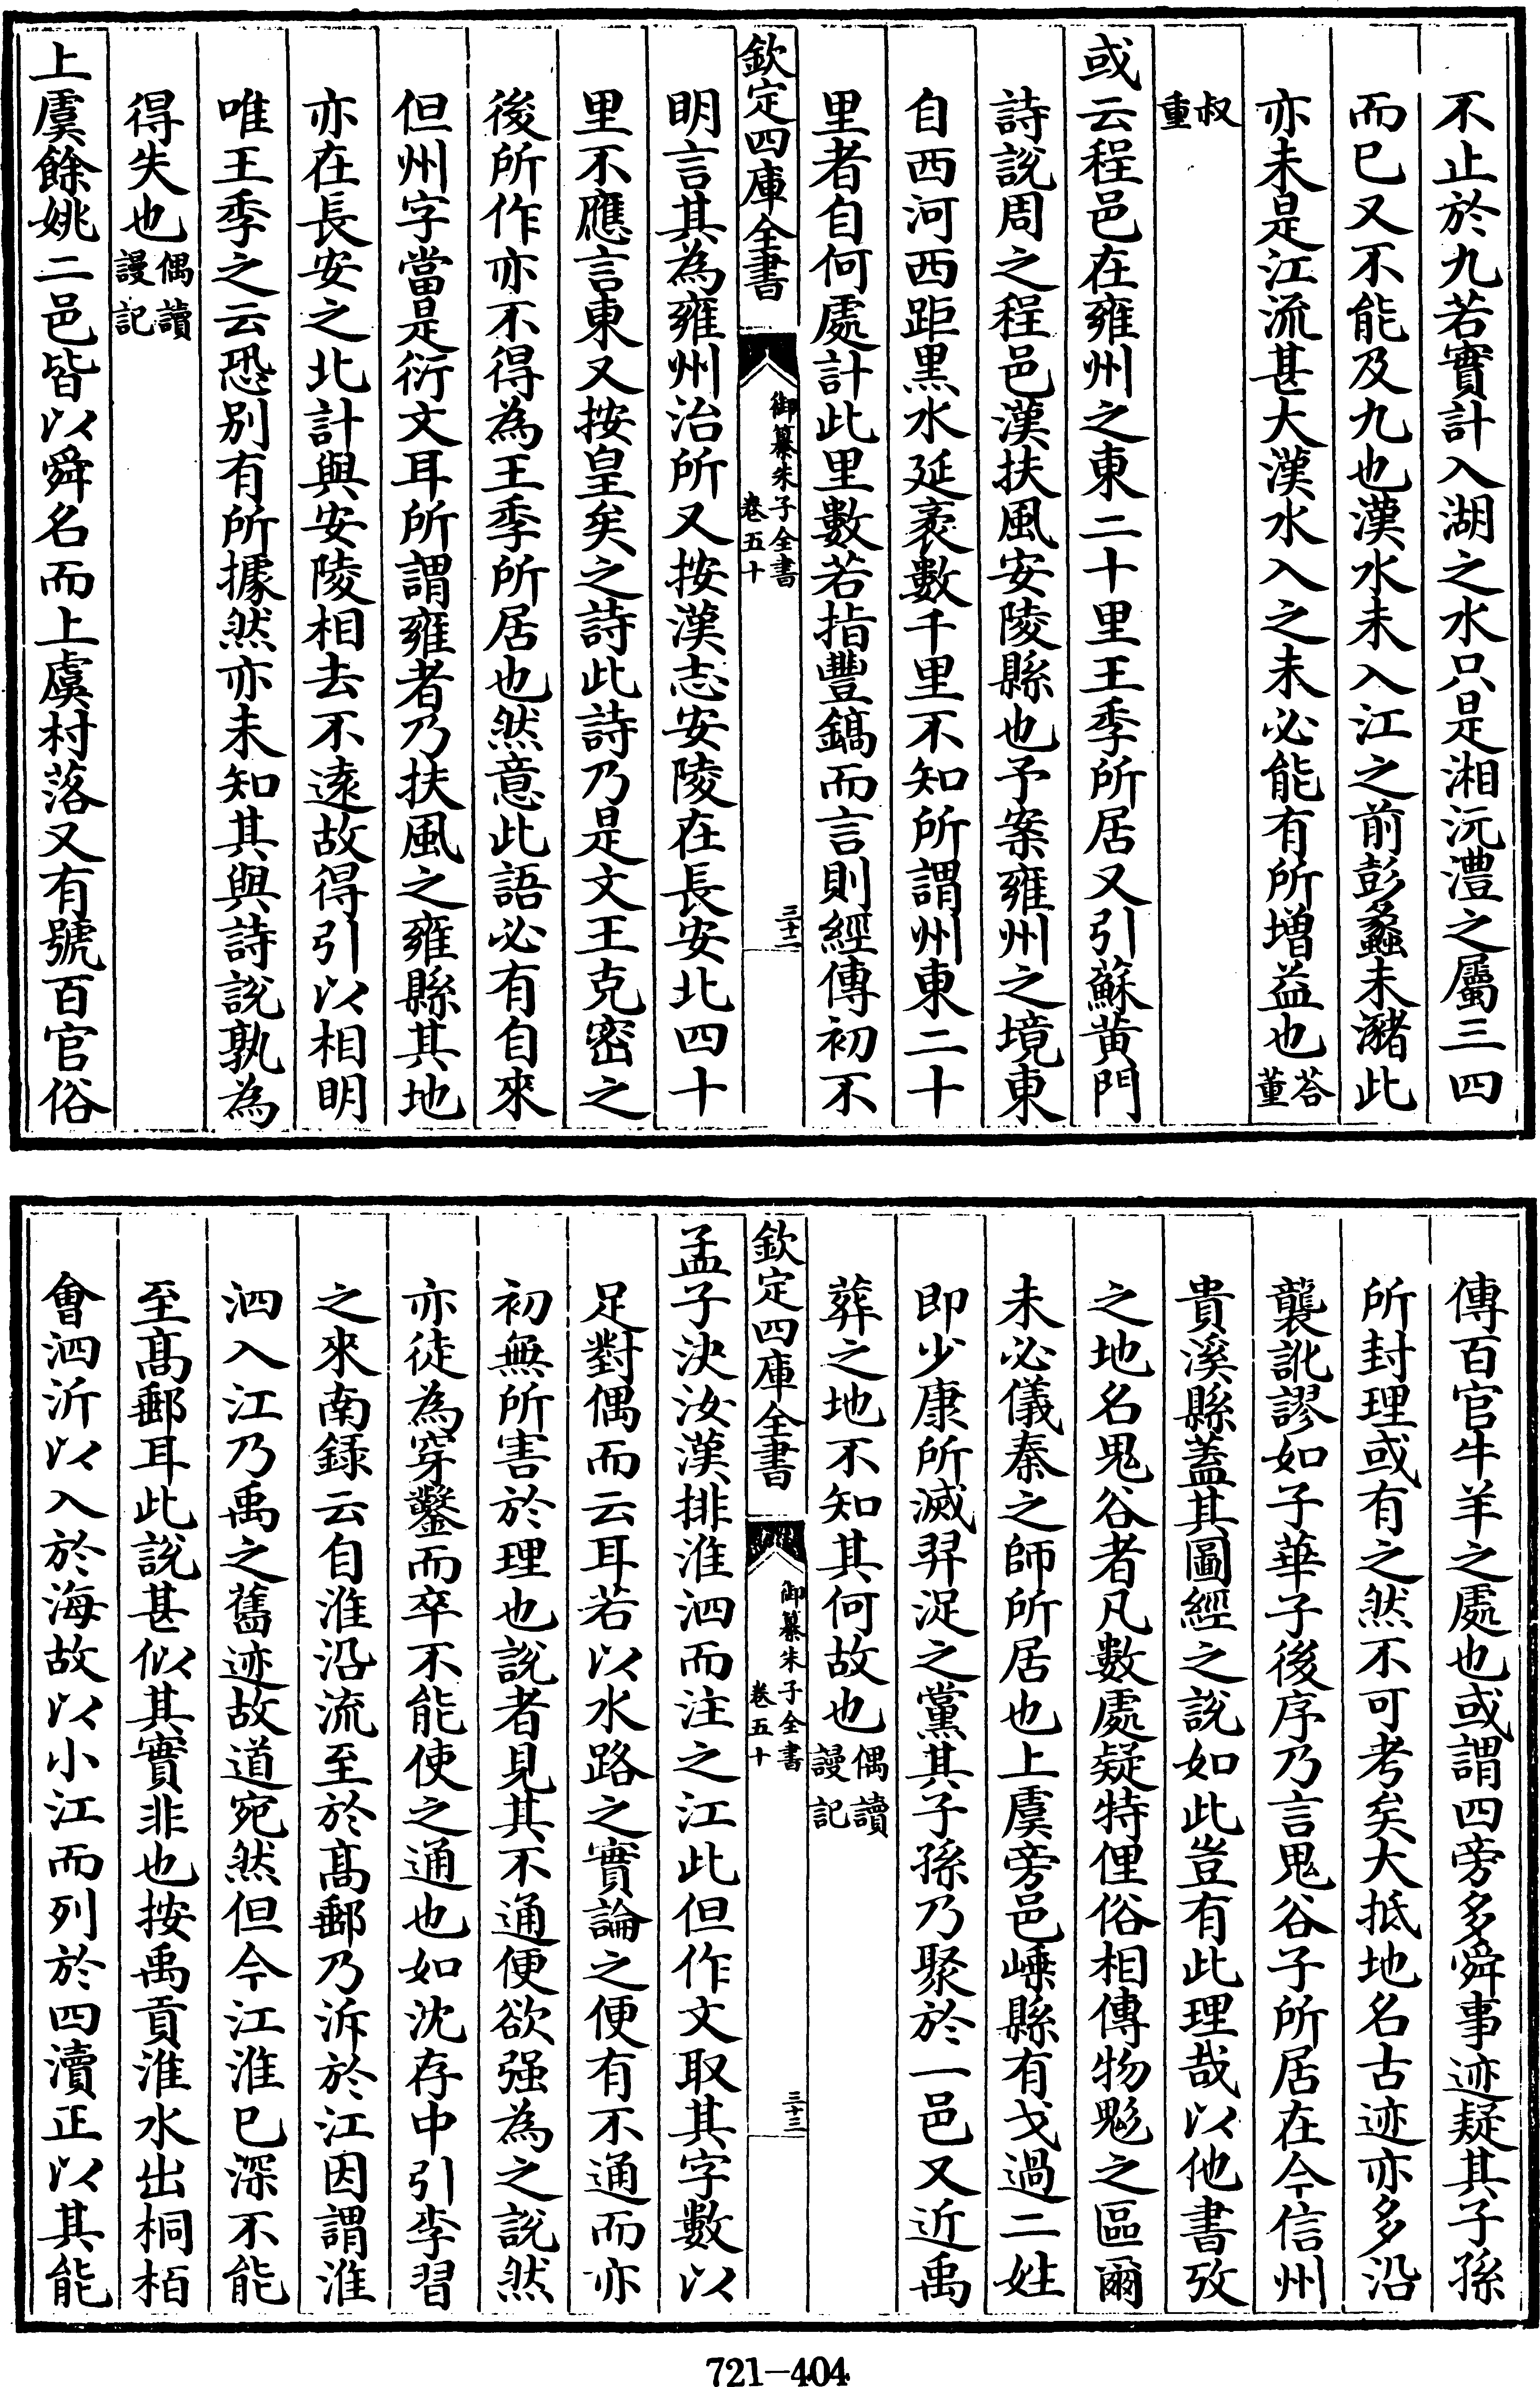 不止於九若實計入湖之水只是湘沅澧之屬三四
而已又不能及九也漢水未入江之前彭蠡未瀦此
亦未是江流甚大漢水入之未必能有所增益也答董
叔重
或云程邑在雍州之東二十里王季所居又引蘇黄門
詩說周之程邑漢扶風安陵縣也予案雍州之境東
自西河西距黑水延袤數千里不知所謂州東二十
里者自何處計此里數若指豐鎬而言則經傳初不
欽定四庫全書
御纂朱子全書
卷五十
三十二
明言其為雍州治所又按漢志安陵在長安北四十
里不應言東又按皇矣之詩此詩乃是文王克密之
後所作亦不得為王季所居也然意此語必有自來
但州字當是衍文耳所謂雍者乃扶風之雍縣其地
亦在長安之北計與安陵相去不逺故得引以相明
唯王季之云恐别有所據然亦未知其與詩說孰為
得失也偶讀謾記
上虞餘姚二邑皆以舜名而上虞村落又有號百官俗
傳百官牛羊之處也或謂四旁多舜事迹疑其子孫
所封理或有之然不可考矣大抵地名古迹亦多沿
襲訛謬如子華子後序乃言鬼谷子所居在今信州
貴溪縣蓋其圖經之說如此豈有此理哉以他書攷
之地名鬼谷者凡數處疑特俚俗相傳物鬽之區爾
未必儀秦之師所居也上虞旁邑嵊縣有戈過二姓
即少康所滅羿浞之黨其子孫乃聚於一邑又近禹
葬之地不知其何故也偶讀謾記
欽定四庫全書
御纂朱子全書
卷五十
三十三
孟子決汝漢排淮泗而注之江此但作文取其字數以
足對偶而云耳若以水路之實論之便有不通而亦
初無所害於理也說者見其不通便欲强為之說然
亦徒為穿鑿而卒不能使之通也如沈存中引李習
之來南録云自淮沿流至於髙郵乃泝於江因謂淮
泗入江乃禹之舊迹故道宛然但今江淮已深不能
至髙郵耳此說甚似其實非也按禹貢淮水出桐柏
會泗沂以入於海故以小江而列於四瀆正以其能
721-404